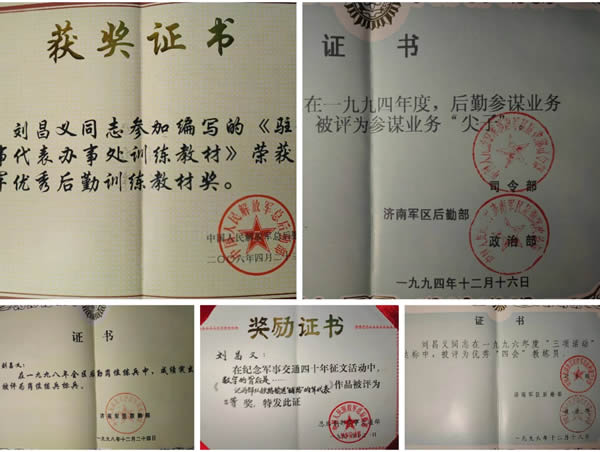 获奖证书
刘昌义同志参加编写的《驻
代表办事处训练教材》荣获
军优秀后勤训练教材奖。
中国人民解放军总后
二〇〇六年四月二十
证 书
在一九九四年度，后勤参谋业务
被评为参谋业务“尖子”
司令部
济南军区后勤部
政治部
一九九四年十二月十六日
证 书
刘昌义：
在一九九八年全区后勤岗位练兵中，成绩突出
被评为岗位练兵标兵。
济南军区后勤部
一九九八年十二月二十四日
奖励证书
刘昌义：
在纪念军事交通四十年征文活动中，
数字的背后是……
作品被评为
等奖，特发此证
证 书
刘昌义同志在一九九六年度“三项活动”
达标中，被评为优秀“四会”教练员。
济南军区后勤部
一九九六年十二月十八日